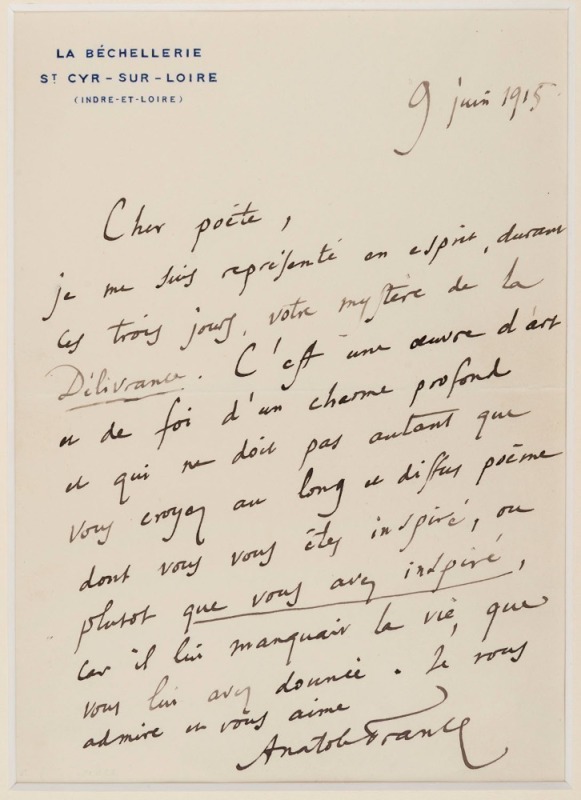 LA BÉCHELLERIE
ST CYR-SUR-LOIRE
(INDRE-ET-LOIRE)
9 juin 1915
Cher poète,
je me suis représenté en esprit, durant
ces trois jours, votre mystère de la
Délivrance. C'est une œuvre d'art
et de foi d'un charme profond
et qui ne doit pas autant que
vous croyez au long et diffus poème
dont vous vous êtes inspiré, ou
plutot que vous avez inspiré,
car il lui manquait la vie, que
vous lui avez donnée. Je vous
admire et vous aime
Anatole France